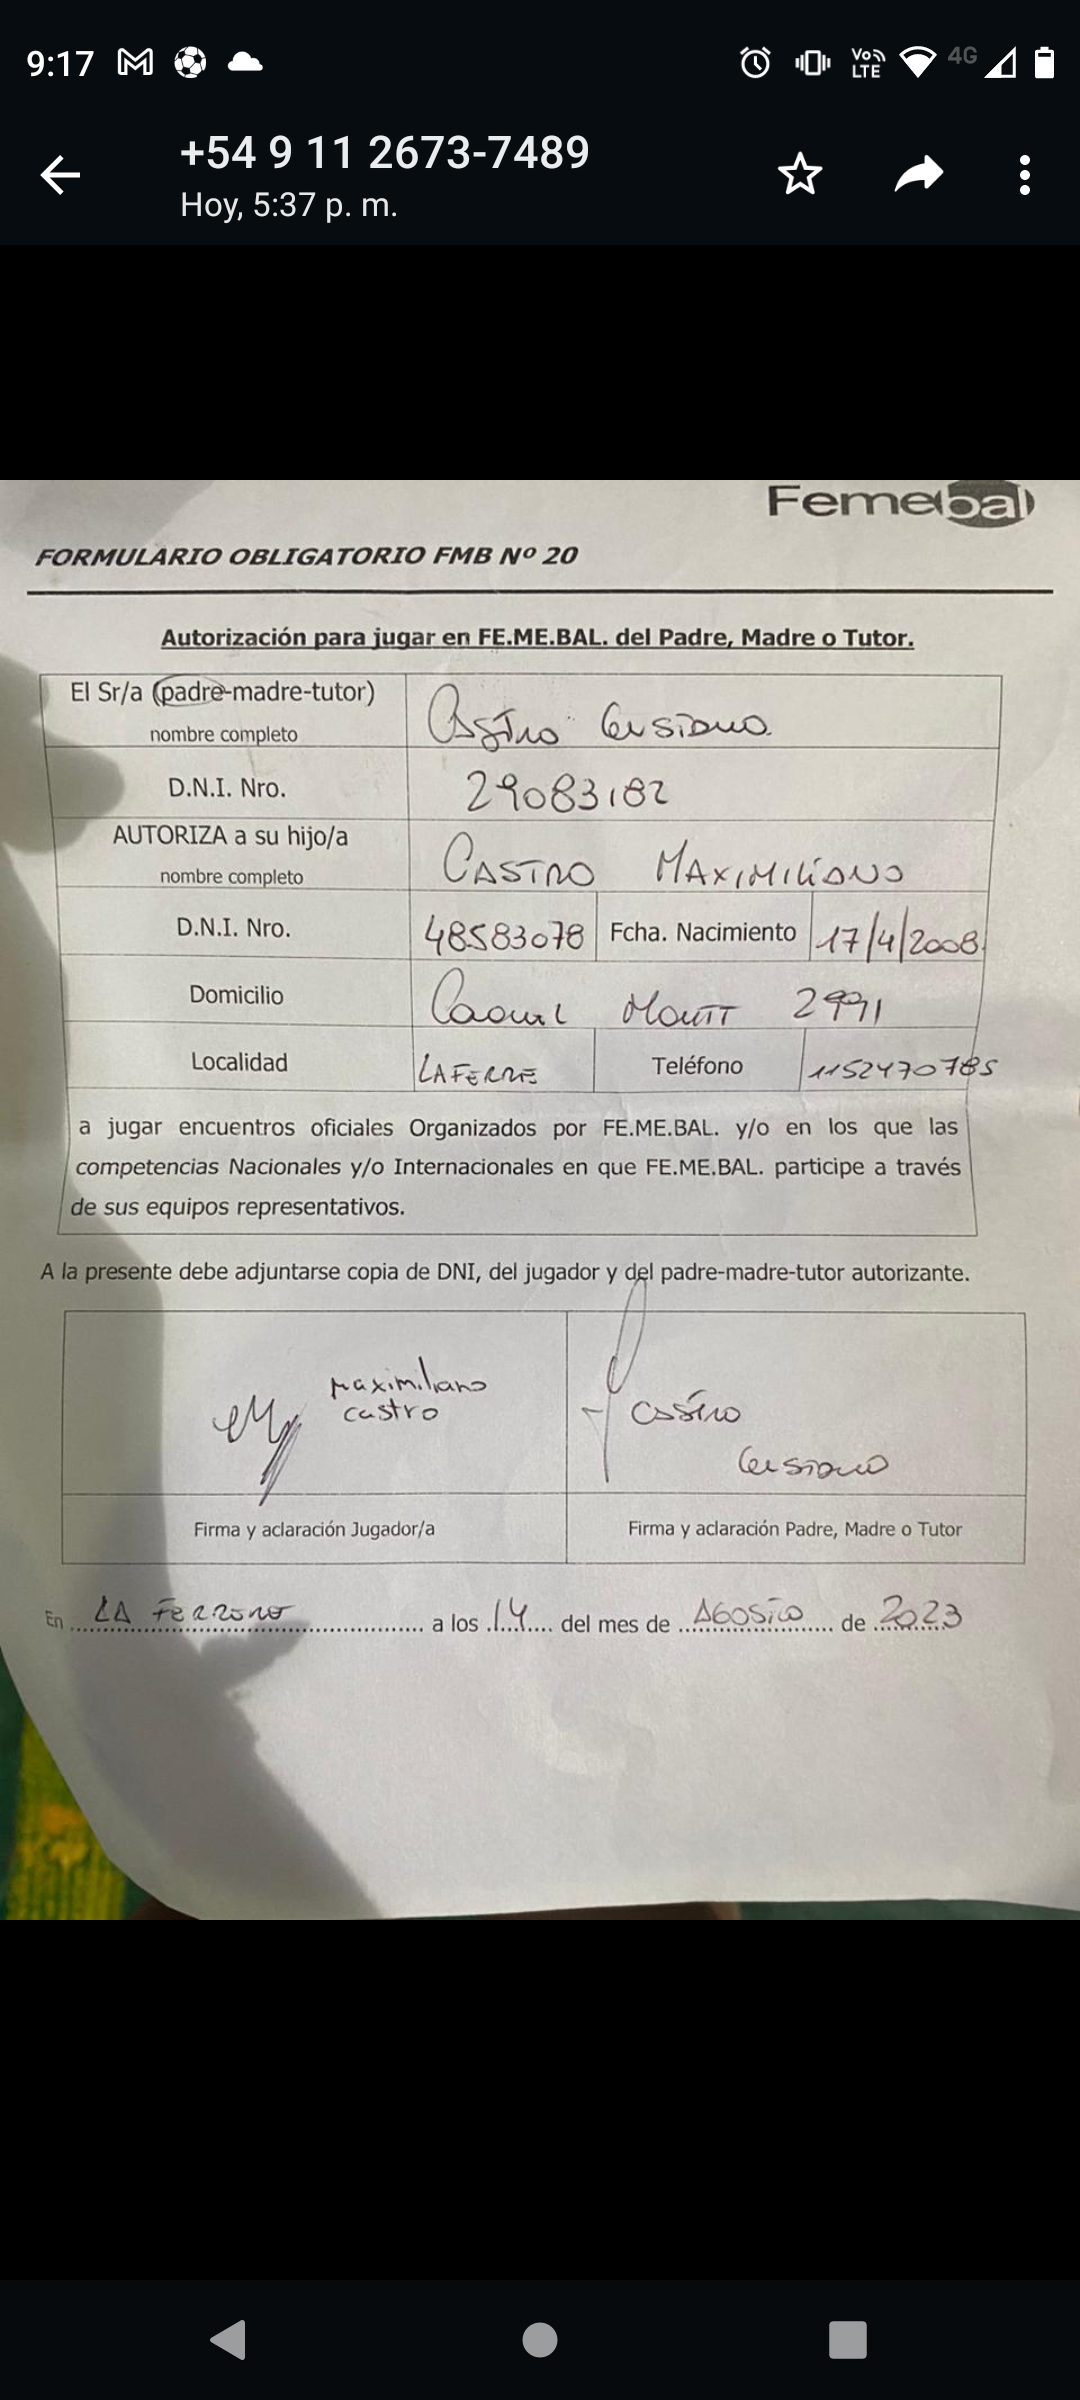 9:17
VoLTE 4G
+54 9 11 2673-7489
Hoy, 5:37 p. m.
Femebal
FORMULARIO OBLIGATORIO FMB Nº 20
Autorización para jugar en FE.ME.BAL. del Padre, Madre o Tutor.
El Sr/a (padre-madre-tutor)
nombre completo
Castro
D.N.I. Nro.
29083182
AUTORIZA a su hijo/a
nombre completo
CASTRO MAXIMILIANO
D.N.I. Nro.
48583078
Fcha. Nacimiento
17/4/2008
Domicilio
Montt 2991
Localidad
LAFERRE
Teléfono
1152470785
a jugar encuentros oficiales Organizados por FE.ME.BAL. y/o en los que las
competencias Nacionales y/o Internacionales en que FE.ME.BAL. participe a través
de sus equipos representativos.
A la presente debe adjuntarse copia de DNI, del jugador y del padre-madre-tutor autorizante.
maximiliano
castro
Castro
Firma y aclaración Jugador/a
Firma y aclaración Padre, Madre o Tutor
En LA FERRERE a los 14 del mes de AGOSTO de 2023